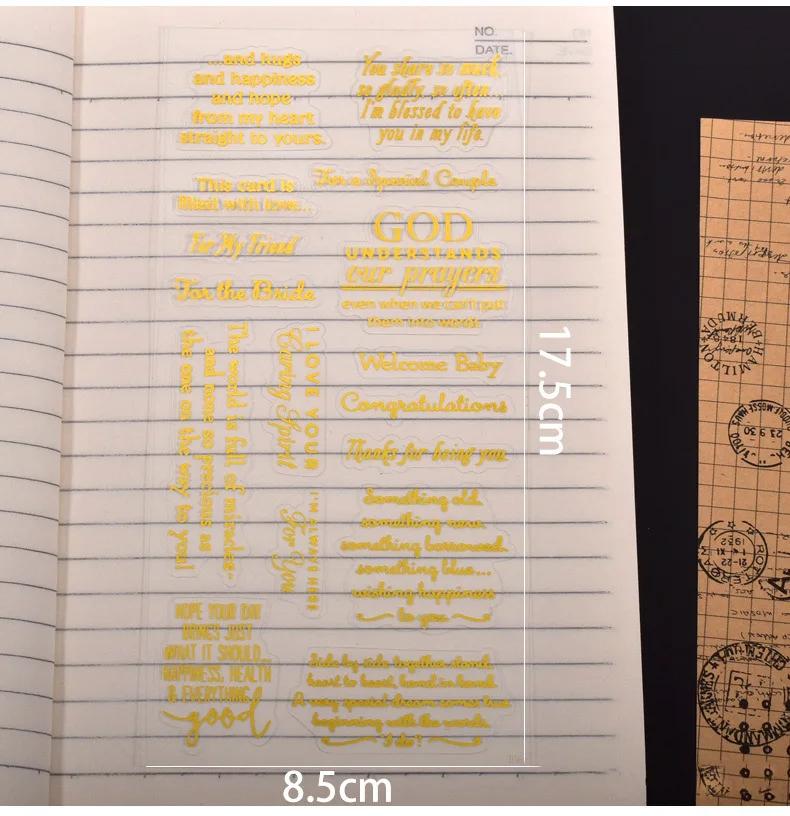 NO.
DATE.
...and hugs
and happiness
and hope
from my heart
straight to yours.
You share so much,
so gladly, so often...
I'm blessed to have
you in my life.
This card is
filled with love...
For a Special Couple
For My Friend
For the Bride
GOD
UNDERSTANDS
our prayers
even when we can't put
them into words.
Welcome Baby
Congratulations
Thanks for being you
I LOVE YOUR
Caring Spirit
The world is full of miracles-
and none so precious as
the one on the way to you!
I'M ALWAYS HERE
For You
Something old,
something new,
something borrowed,
something blue...
wishing happiness
to you
HOPE YOUR DAY
BRINGS JUST
WHAT IT SHOULD...
HAPPINESS, HEALTH
& EVERYTHING
good
Side by side together stand,
heart to heart, hand in hand.
A very special dream comes true
beginning with the words,
"I do!"
17.5cm
8.5cm
HAMILTON
BERMUDA
23.9.30
ROTTERDAM
21-22
1932